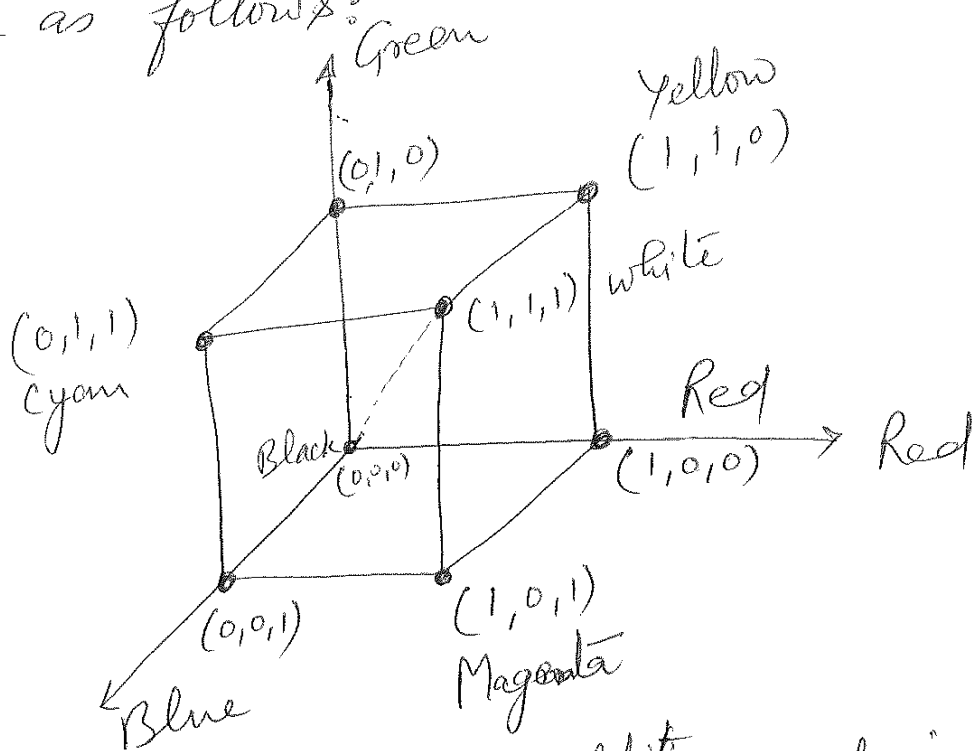 as follows:
Green
Yellow
(1,1,0)
(0,1,0)
white
(1,1,1)
(0,1,1)
Cyan
Red
Black
(0,0,0)
(1,0,0)
Red
(0,0,1)
(1,0,1)
Magenta
Blue